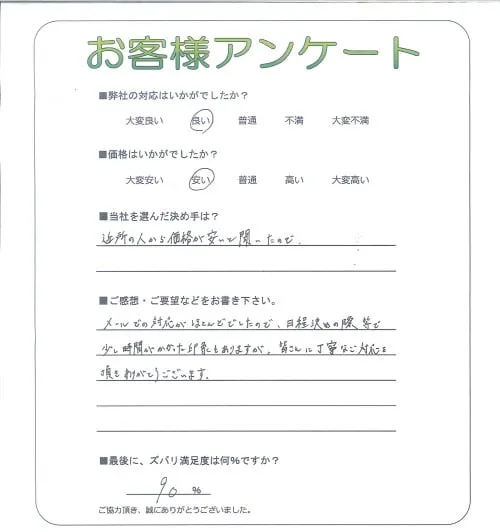 お客様アンケート
■弊社の対応はいかがでしたか？
大変良い 良い 普通 不満 大変不満
■価格はいかがでしたか？
大変安い 安い 普通 高い 大変高い
■当社を選んだ決め手は？
近所の人から価格が安いと聞いたので、
■ご感想・ご要望などをお書き下さい。
メールでの対応がほとんどでしたので、日程決めの際等で
少し時間がかかった印象もありますが、皆さんに丁寧なご対応を
頂きありがとうございます。
■最後に、ズバリ満足度は何％ですか？
90 %
ご協力頂き、誠にありがとうございました。